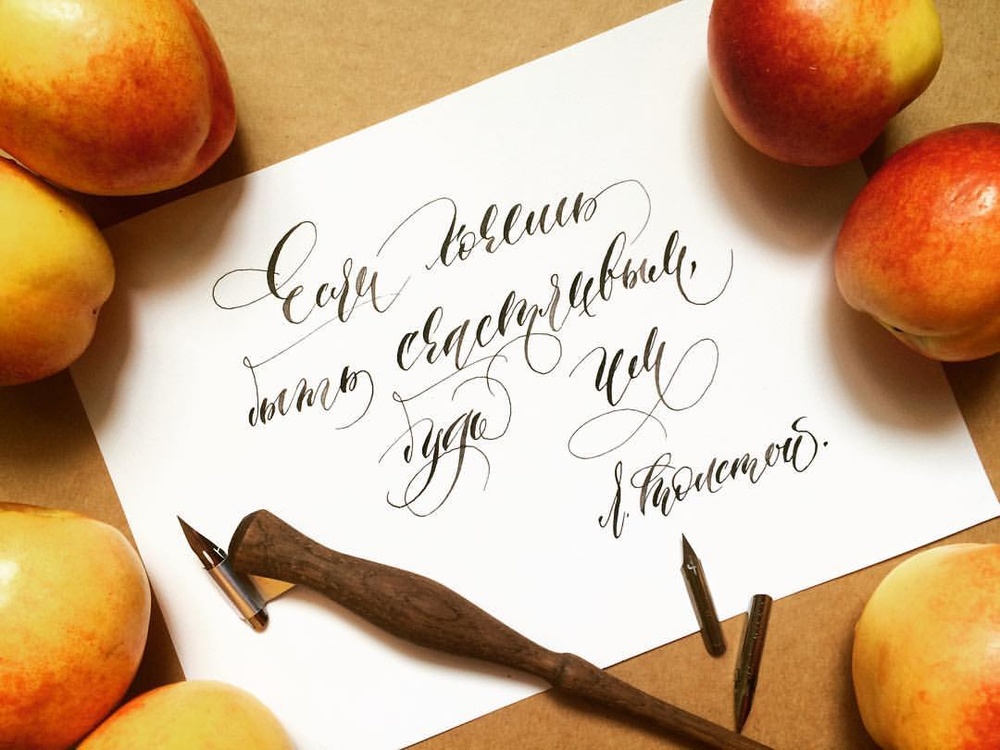 Если хочешь
быть счастливым,
будь им
Л. Толстой.